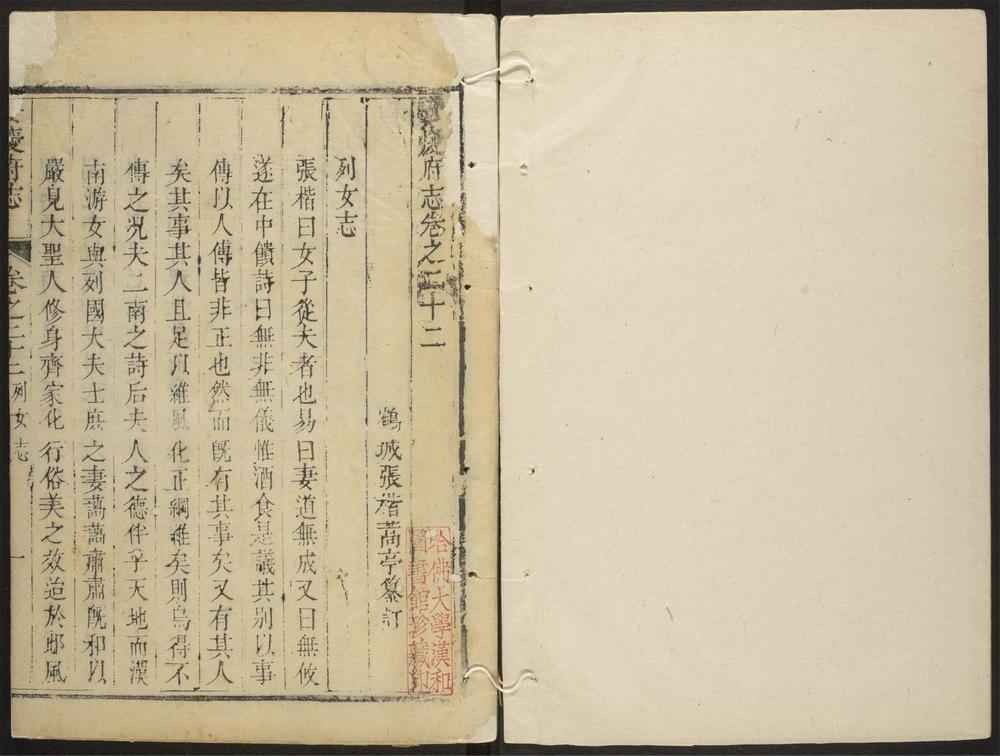 慶府志卷之二十二
鶴城張楷蒿亭纂訂
列女志
張楷曰女子從夫者也易曰妻道無成又曰無攸
遂在中饋詩曰無非無儀惟酒食是議其别以事
傳以人傳皆非正也然而旣有其事矣又有其人
矣其事其人且足以維風化正綱維矣則烏得不
傳之况夫二南之詩后夫人之德侔乎天地而漢
南游女與列國大夫士庶之妻藹藹肅肅旣和以
嚴見大聖人修身齊家化行俗美之效迨於邶風
慶府志 卷之二十二 列女志 一
哈佛大學漢和
圖書館珍藏印